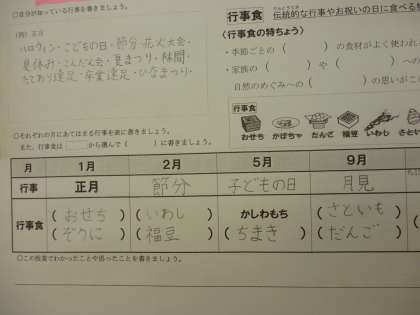 ○自分が知っている行事を書きましょう。
(例) 正月
ハロウィン・こどもの日・節分・花火大会・
夏休み・こんだん会・夏まつり・林間・
たてわり遠足・卒業遠足・ひなまつり・
○それぞれの月にあてはまる行事を表に書きましょう。
また、行事食は から選んで( )に書きましょう。
行事食 伝統的な行事やお祝いの日に食べる
〈行事食の特ちょう〉
・季節ごとの( )の食材がよく使われ
・家族の( )や( )への
自然のめぐみへの( )の思いがこ
行事食
おせち かぼちゃ だんご 福豆 いわし さとい
月 1月 2月 5月 9月
行事 正月 節分 子どもの日 月見
行事食 (おせち) (いわし) かしわもち (さといも)
(ぞうに) (福豆) (ちまき) (だんご)
○この授業でわかったことや思ったことを書きましょう。